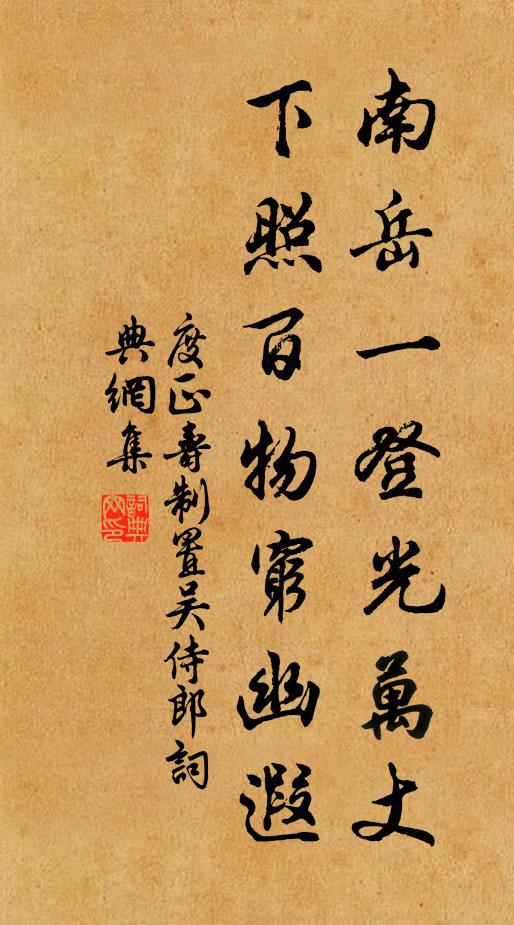 南岳一登光萬丈
下照百物窮幽遐
度正壽制置吴侍郎詞
典網集
詞典网印